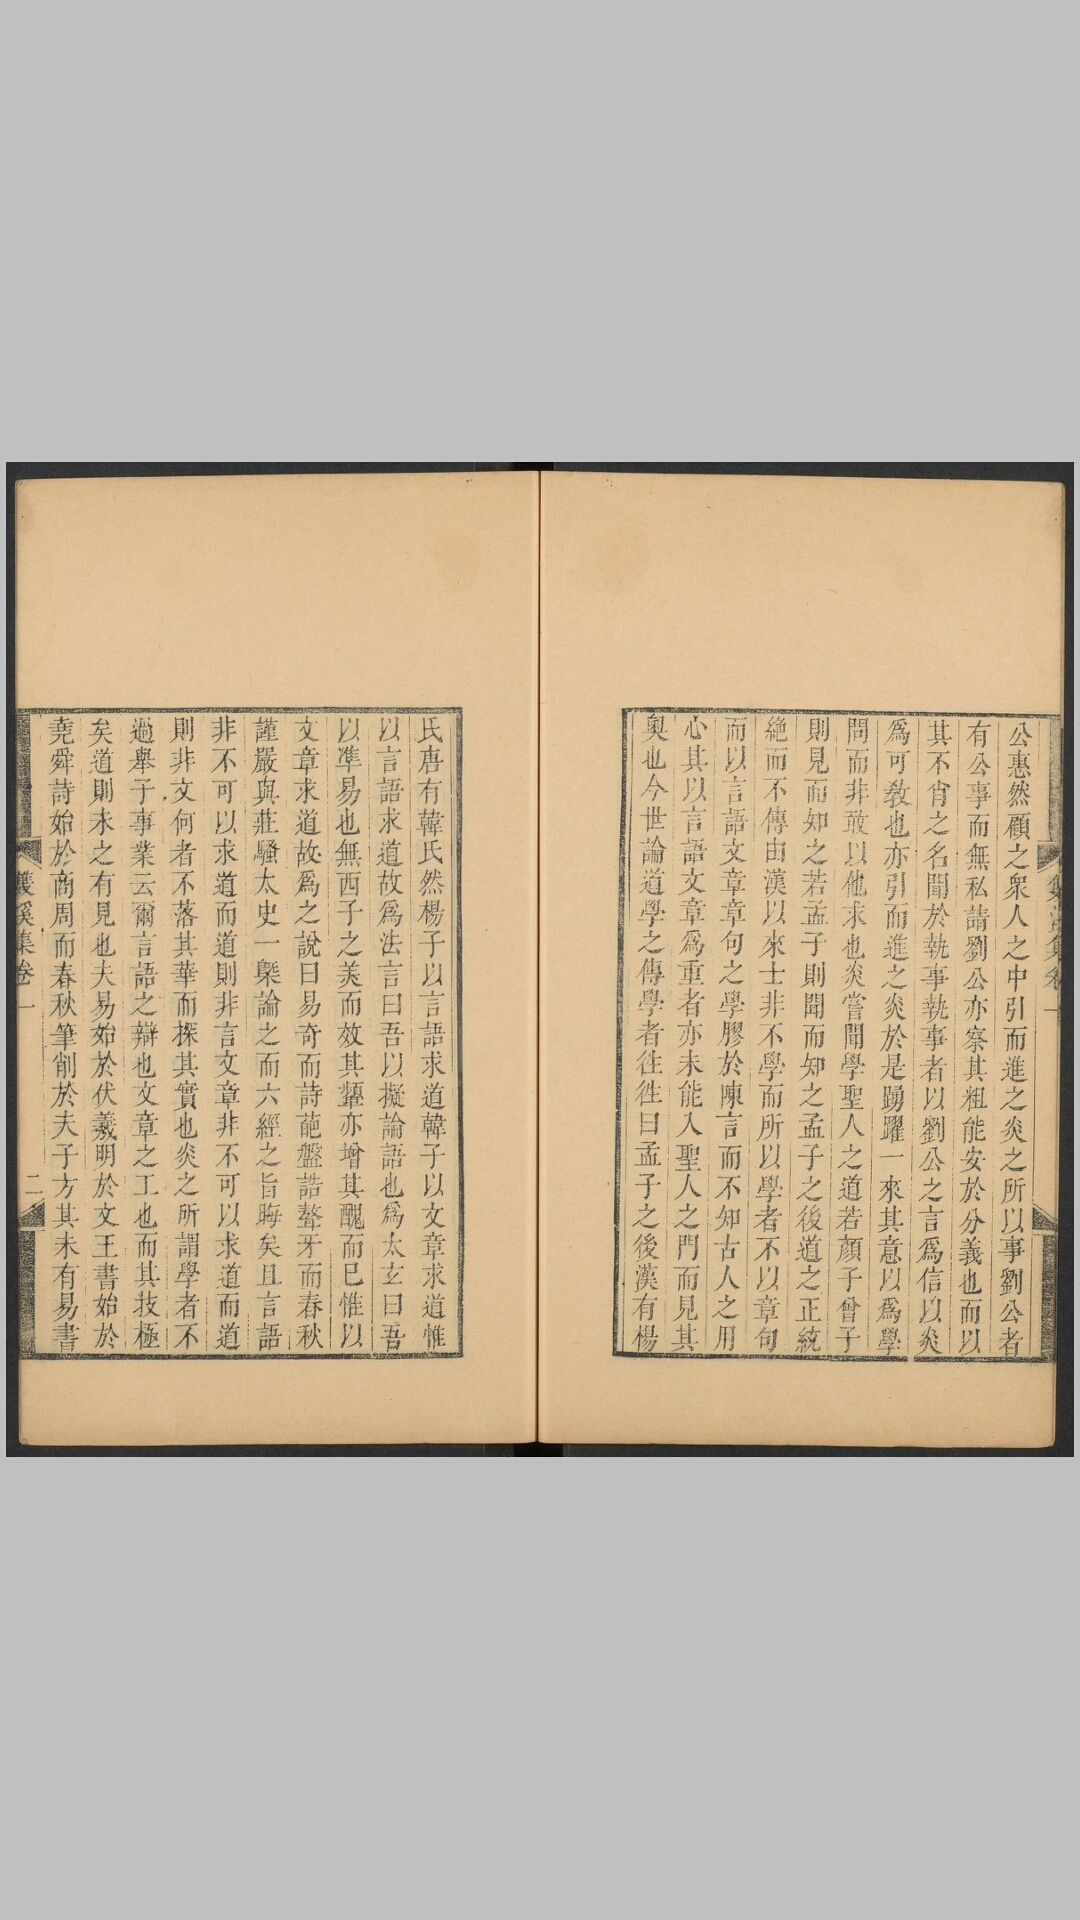 公惠然顧之衆人之中引而進之炎之所以事劉公者
有公事而無私請劉公亦察其粗能安於分義也而以
其不肖之名聞於執事執事者以劉公之言爲信以炎
爲可敎也亦引而進之炎於是踴躍一來其意以爲學
問而非敢以他求也炎嘗聞學聖人之道若顏子曾子
則見而知之若孟子則聞而知之孟子之後道之正統
絶而不傳由漢以來士非不學而所以學者不以章句
而以言語文章章句之學膠於陳言而不知古人之用
心其以言語文章爲重者亦未能入聖人之門而見其
奧也今世論道學之傳學者徃徃曰孟子之後漢有楊
氏唐有韓氏然楊子以言語求道韓子以文章求道惟
以言語求道故爲法言曰吾以擬論語也爲太玄曰吾
以準易也無西子之美而效其顰亦增其醜而已惟以
文章求道故爲之說曰易奇而詩葩盤誥聱牙而春秋
謹嚴與莊騷太史一槩論之而六經之旨晦矣且言語
非不可以求道而道則非言文章非不可以求道而道
則非文何者不落其華而探其實也炎之所謂學者不
過舉子事業云爾言語之辯也文章之工也而其技極
矣道則未之有見也夫易始於伏羲明於文王書始於
堯舜詩始於商周而春秋筆削於夫子方其未有易書
雙溪集卷一
二